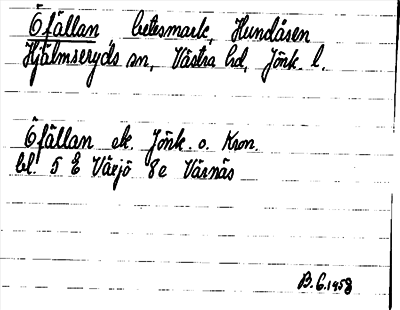 Öfällan betesmark, Hundåsen
Hjälmseryds sn, Västra hd, Jönk. l.
Öfällan ek. Jönk. o. Kron.
bl. 5 E Växjö 8e Värnäs
B. G. 1958